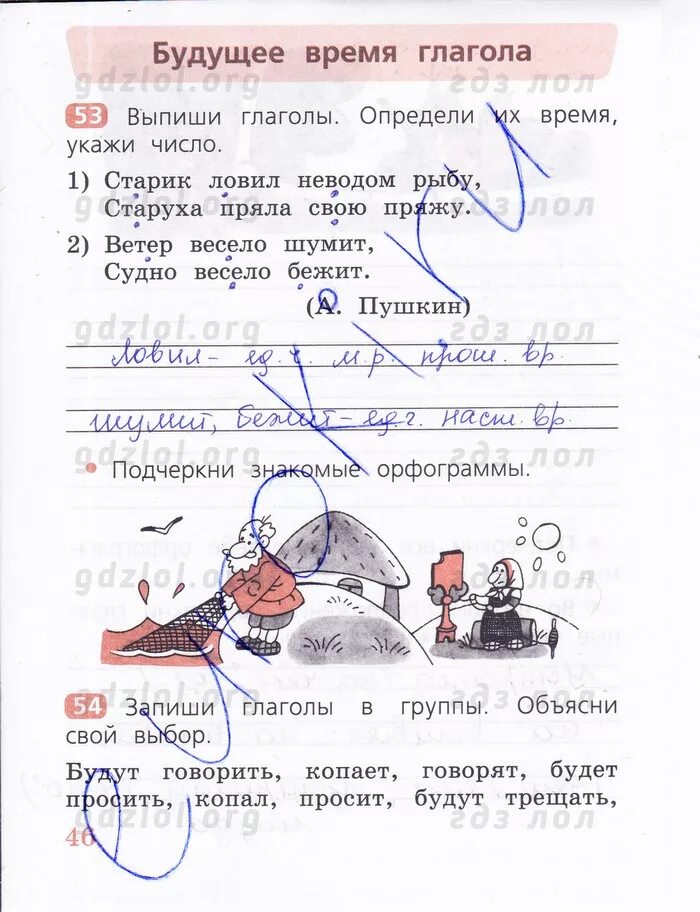 Будущее время глагола
gdzlol.org гдз лол
53 Выпиши глаголы. Определи их время,
укажи число.
1) Старик ловил неводом рыбу,
gdzlol.org гдз лол
Старуха пряла свою пряжу.
2) Ветер весело шумит,
Судно весело бежит.
(А. Пушкин)
gdzlol.org гдз лол
Ловил - ед. ч. м.р. прош. вр.
шумит, бежит - ед. ч. наст. вр.
gdzlol.org гдз лол
• Подчеркни знакомые орфограммы.
gdzlol.org гдз лол
gdzlol.org гдз лол
54 Запиши глаголы в группы. Объясни
свой выбор.
Будут говорить, копает, говорят, будет
просить, копал, просит, будут трещать,
gdzlol.org гдз лол
46